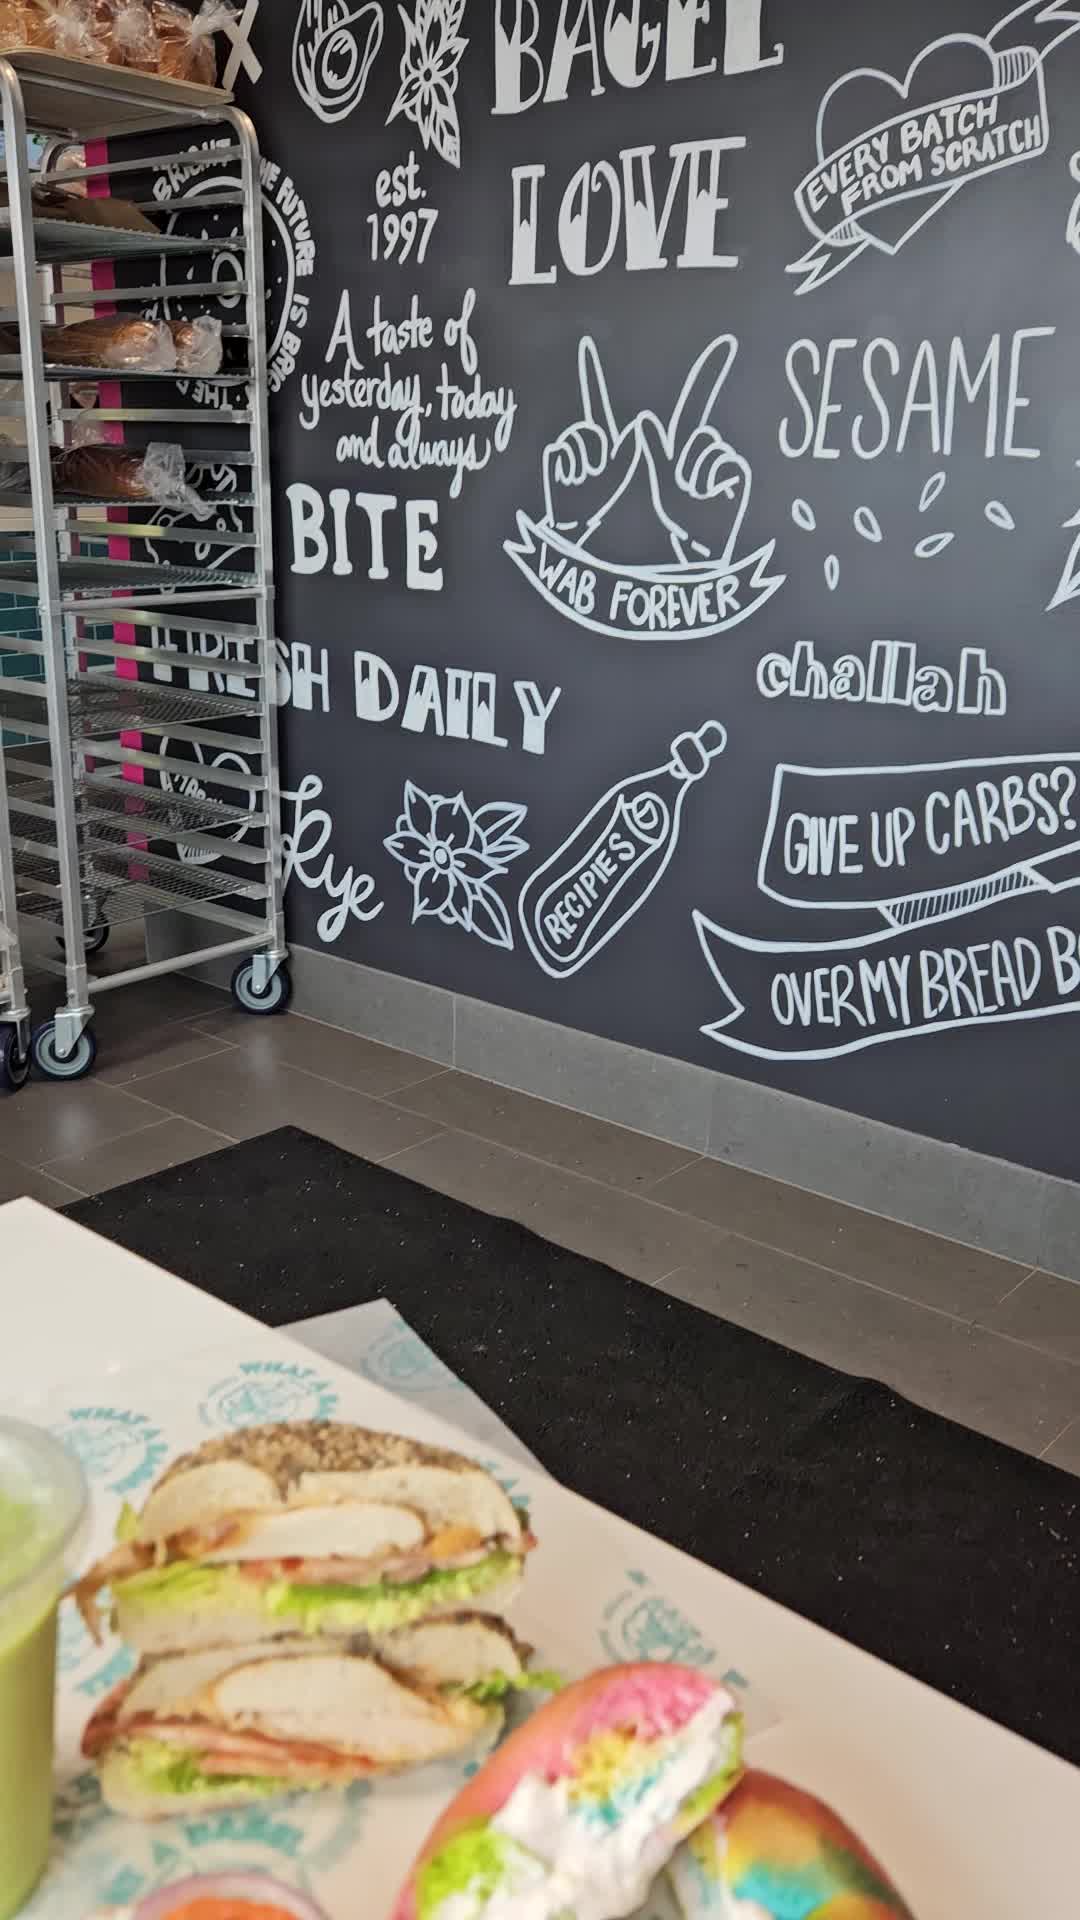 BAGEL
LOVE
EVERY BATCH
FROM SCRATCH
est.
1997
BRIGHT
THE FUTURE IS
A taste of
yesterday, today
and always
SESAME
BITE
WAB FOREVER
FRESH DAILY
challah
Rye
RECIPIES
GIVE UP CARBS?
OVER MY BREAD
WHAT A
WHAT A
A BAGEL